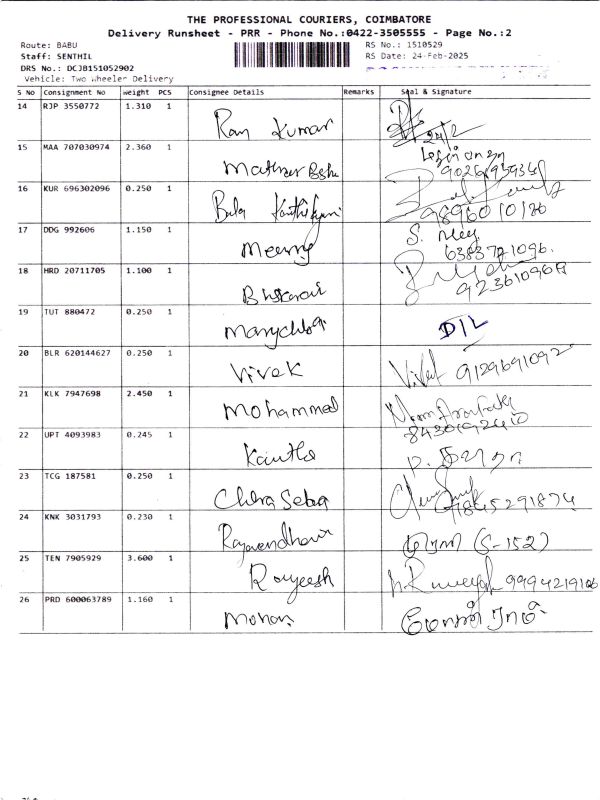 THE PROFESSIONAL COURIERS, COIMBATORE
Delivery Runsheet - PRR - Phone No.:0422-3505555 - Page No.:2
Route: BABU
RS No.: 1510529
Staff: SENTHIL
RS Date: 24-Feb-2025
DRS No.: DCJB151052902
Vehicle: Two Wheeler Delivery
S No Consignment No weight PCS Consignee Details Remarks Seal & Signature
14 RJP 3550772 1.310 1
Ram Kumar 24/2
15 MAA 707030974 2.360 1
16 KUR 696302096 0.250 1
Bala 9896010126
17 DDG 992606 1.150 1
S.
6383771096.
18 HRD 20711705 1.100 1
9236109608
19 TUT 880472 0.250 1
D/L
20 BLR 620144627 0.250 1
Vivek 9129691092
21 KLK 7947698 2.450 1
Mohammed
22 UPT 4093983 0.245 1
Kavitha
23 TCG 187581 0.250 1
24 KNK 3031793 0.230 1
(S-152)
25 TEN 7905929 3.600 1
9994219106
26 PRD 600063789 1.160 1
Mohan